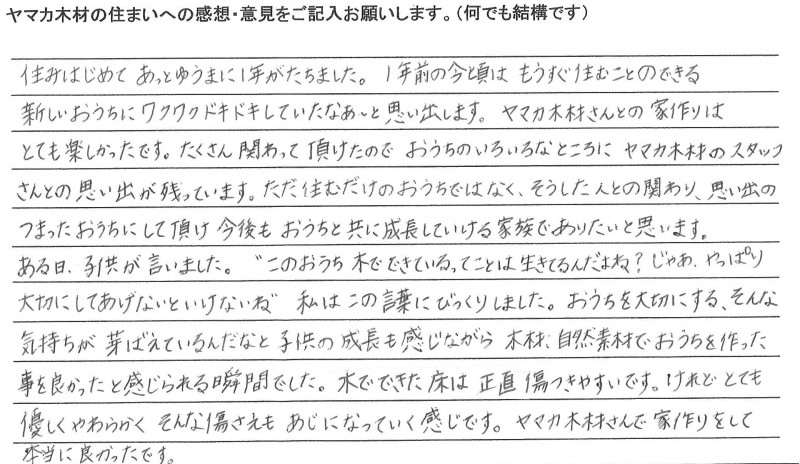 ヤマカ木材の住まいへの感想・意見をご記入お願いします。（何でも結構です）
住みはじめて あっとゆうまに1年がたちました。 1年前の今頃は もうすぐ住むことのできる
新しいおうちにワクワクドキドキしていたなあ〜と思い出します。 ヤマカ木材さんとの 家作りは
とても楽しかったです。たくさん 関わって 頂けたので おうちのいろいろなところに ヤマカ木材のスタッフ
さんとの思い出が残っています。ただ住むだけのおうちではなく、そうした人との関わり、思い出の
つまったおうちにして頂け 今後も おうちと共に成長していける家族でありたいと思います。
ある日、子供が言いました。 "このおうち 木でできているってことは生きてるんだよね？じゃあ、やっぱり
大切にしてあげないといけないね" 私は この言葉にびっくりしました。おうちを大切にする、そんな
気持ちが 芽ばえているんだなと 子供の 成長も感じながら 木材、自然素材でおうちを作った
事を良かったと感じられる瞬間でした。木でできた床は 正直 傷つきやすいです。けれど とても
優しくやわらかく そんな傷さえも あじになっていく感じです。 ヤマカ木材さんで 家作りをして
本当に良かったです。